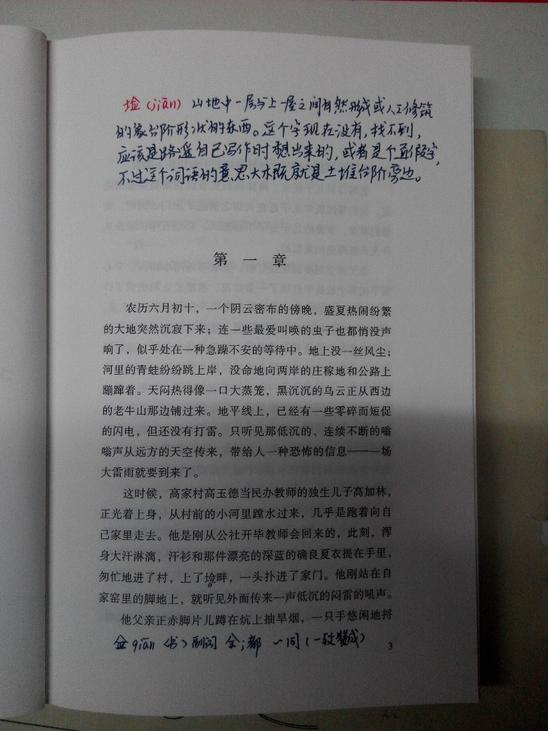 垍(jiān) 山地中一层与上一层之间自然形成或人工修筑
的象台阶形状的东西。这个字现在没有,找不到,
应该是路遥自己写作时想出来的,或者是个通假字,
不过这个词语的意思大概就是土堆台阶旁边。
第一章
农历六月初十,一个阴云密布的傍晚,盛夏热闹纷繁
的大地突然沉寂下来;连一些最爱叫唤的虫子也都悄没声
响了,似乎处在一种急躁不安的等待中。地上没一丝风尘;
河里的青蛙纷纷跳上岸,没命地向两岸的庄稼地和公路上
蹦蹿着。天闷热得像一口大蒸笼,黑沉沉的乌云正从西边
的老牛山那边铺过来。地平线上,已经有一些零碎而短促
的闪电,但还没有打雷。只听见那低沉的、连续不断的嗡
嗡声从远方的天空传来,带给人一种恐怖的信息——一场
大雷雨就要到来了。
这时候,高家村高玉德当民办教师的独生儿子高加林,
正光着上身,从村前的小河里蹚水过来,几乎是跑着向自
己家里走去。他是刚从公社开毕教师会回来的,此刻,浑
身大汗淋漓,汗衫和那件漂亮的深蓝的确良夏衣提在手里,
匆忙地进了村,上了硷畔,一头扑进了家门。他刚站在自
家窑里的脚地上,就听见外面传来一声低沉的闷雷的吼声。
他父亲正赤脚片儿蹲在炕上抽旱烟,一只手悠闲地捋
佥 qiān 〈书〉副词 全;都 一同(一致赞成)
3